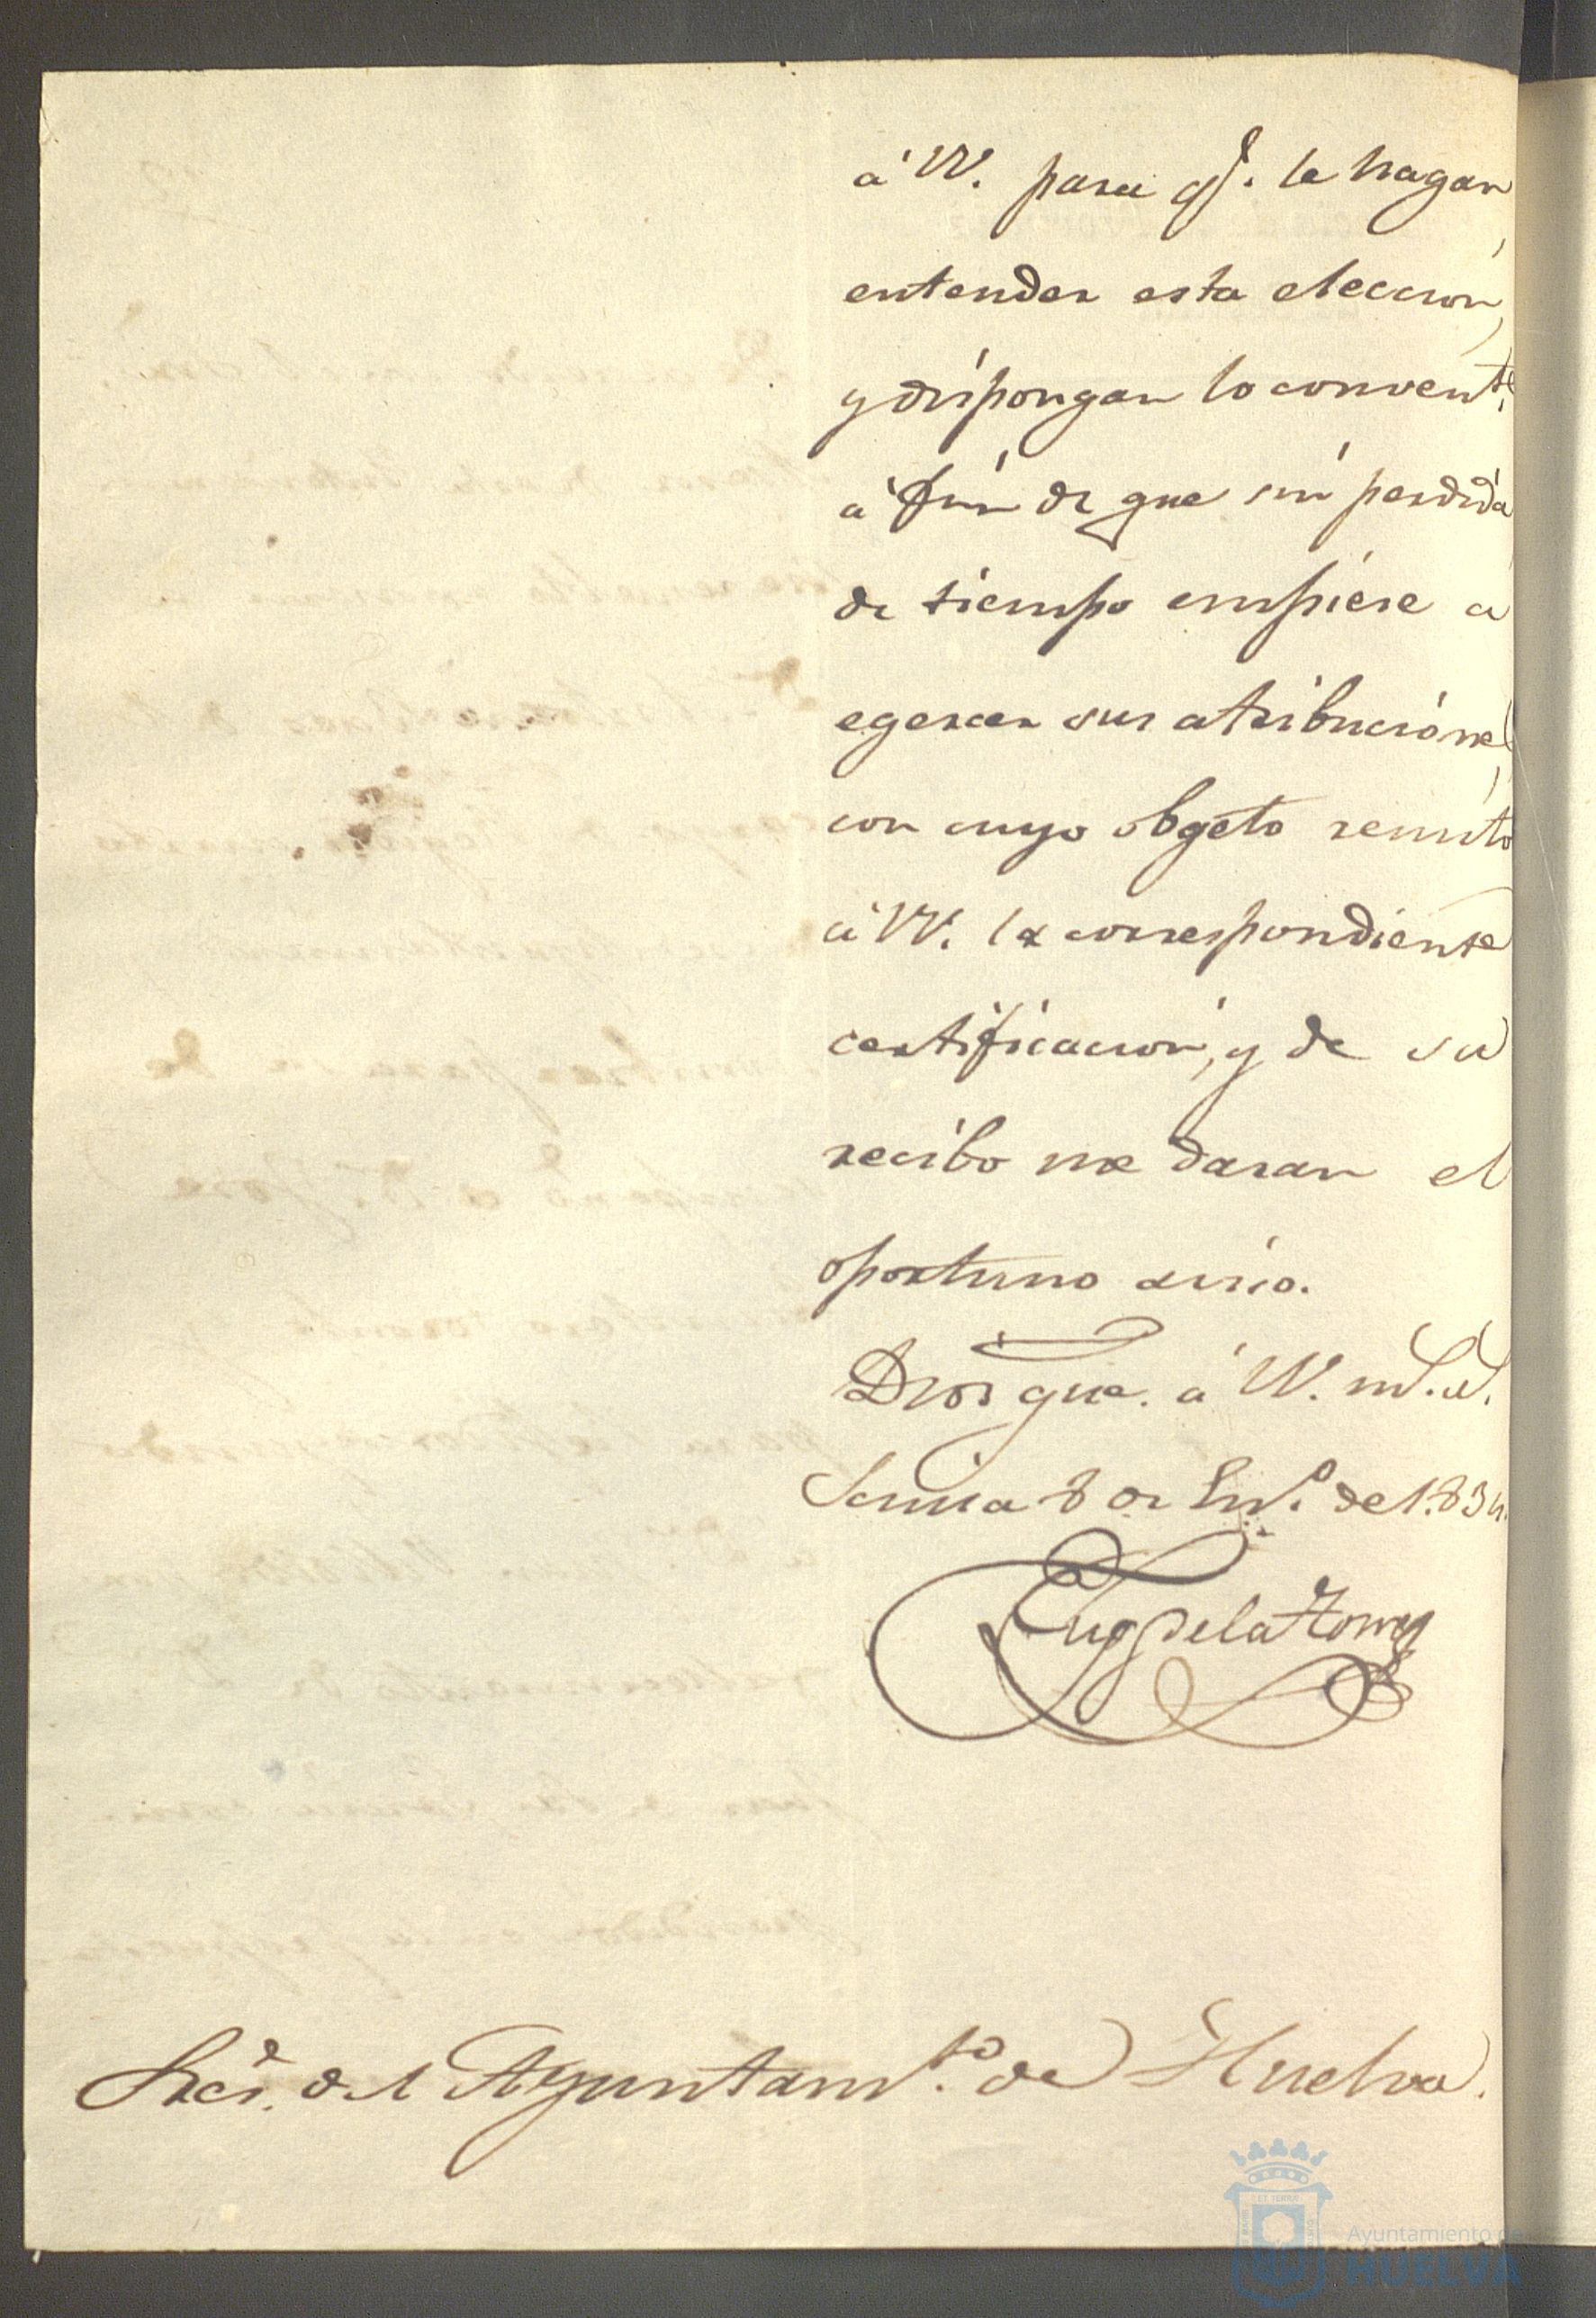 á VV. para qe. le hagan
entender esta eleccion,
y dispongan lo convente.
á fin de que sin perdida
de tiempo empiese a
egercer sus atribuciónes,
con cuyo obgeto remito
á VV. la correspondiente
certificacion, y de su
recibo me daran el
oportuno aviso.
Dios gue. á VV. ms. as.
Sevilla 8 de Eno. de 1.834.
de la Torre
Sres. del Ayuntamto. de Huelva.
Ayuntamiento de
HUELVA